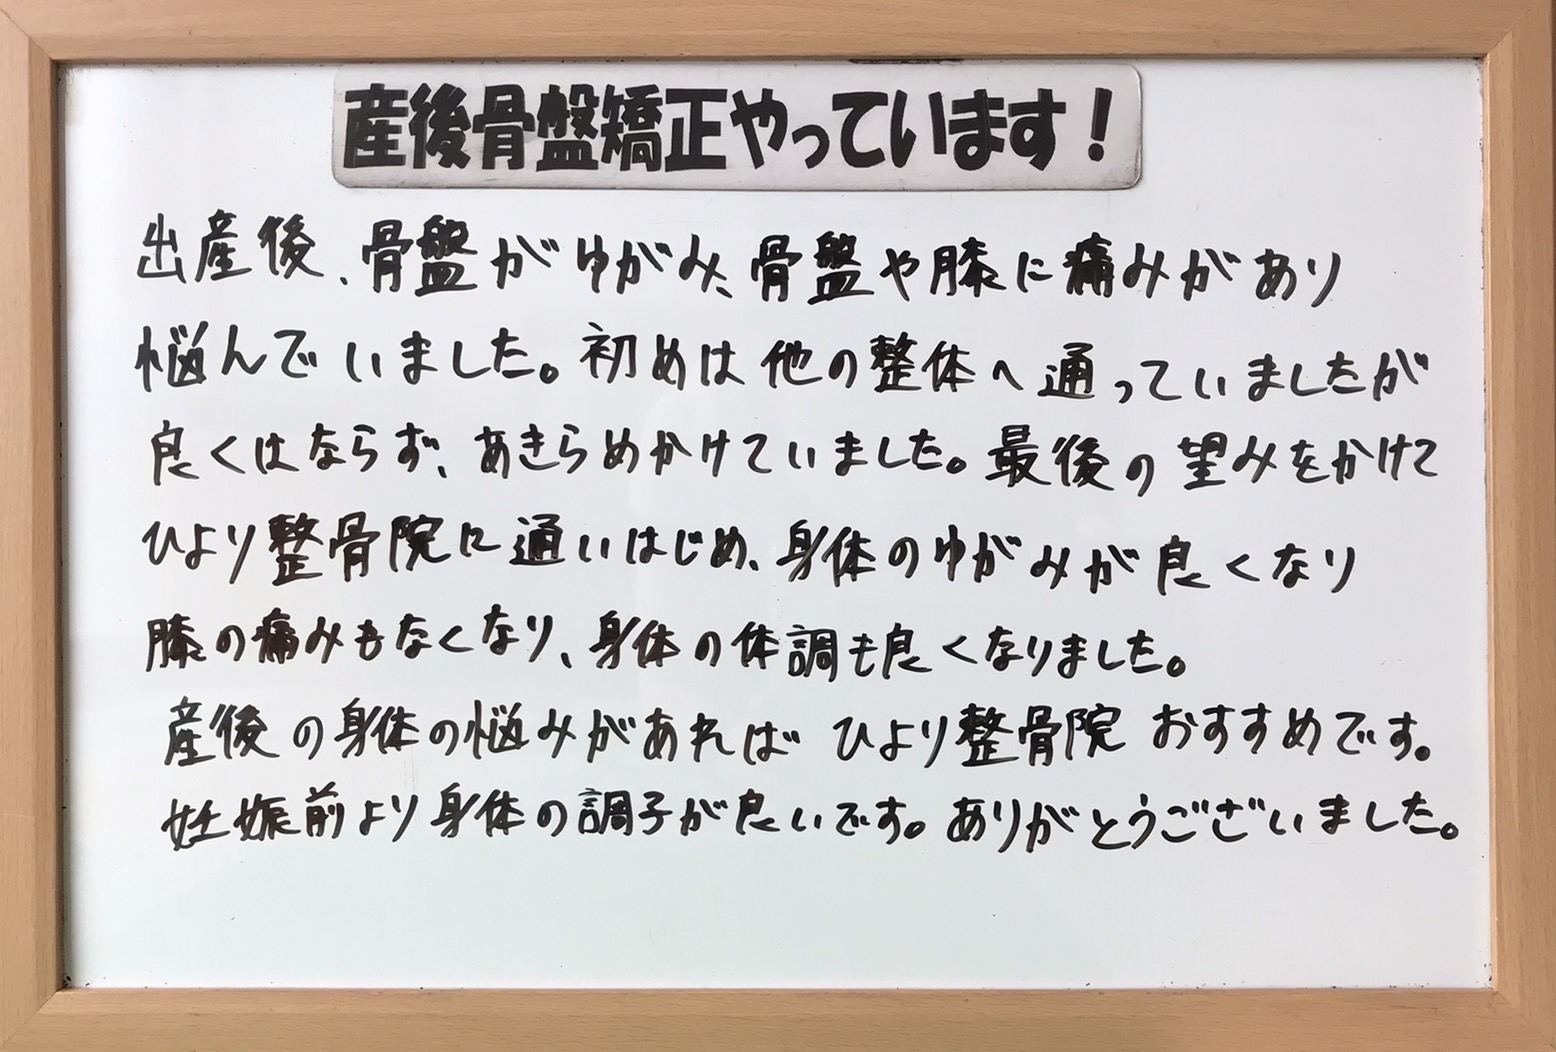 産後骨盤矯正やっています！
出産後、骨盤がゆがみ、骨盤や膝に痛みがあり
悩んでいました。初めは他の整体へ通っていましたが
良くはならず、あきらめかけていました。最後の望みをかけて
ひより整骨院に通いはじめ、身体のゆがみが良くなり
膝の痛みもなくなり、身体の体調も良くなりました。
産後の身体の悩みがあれば ひより整骨院 おすすめです。
妊娠前より身体の調子が良いです。ありがとうございました。